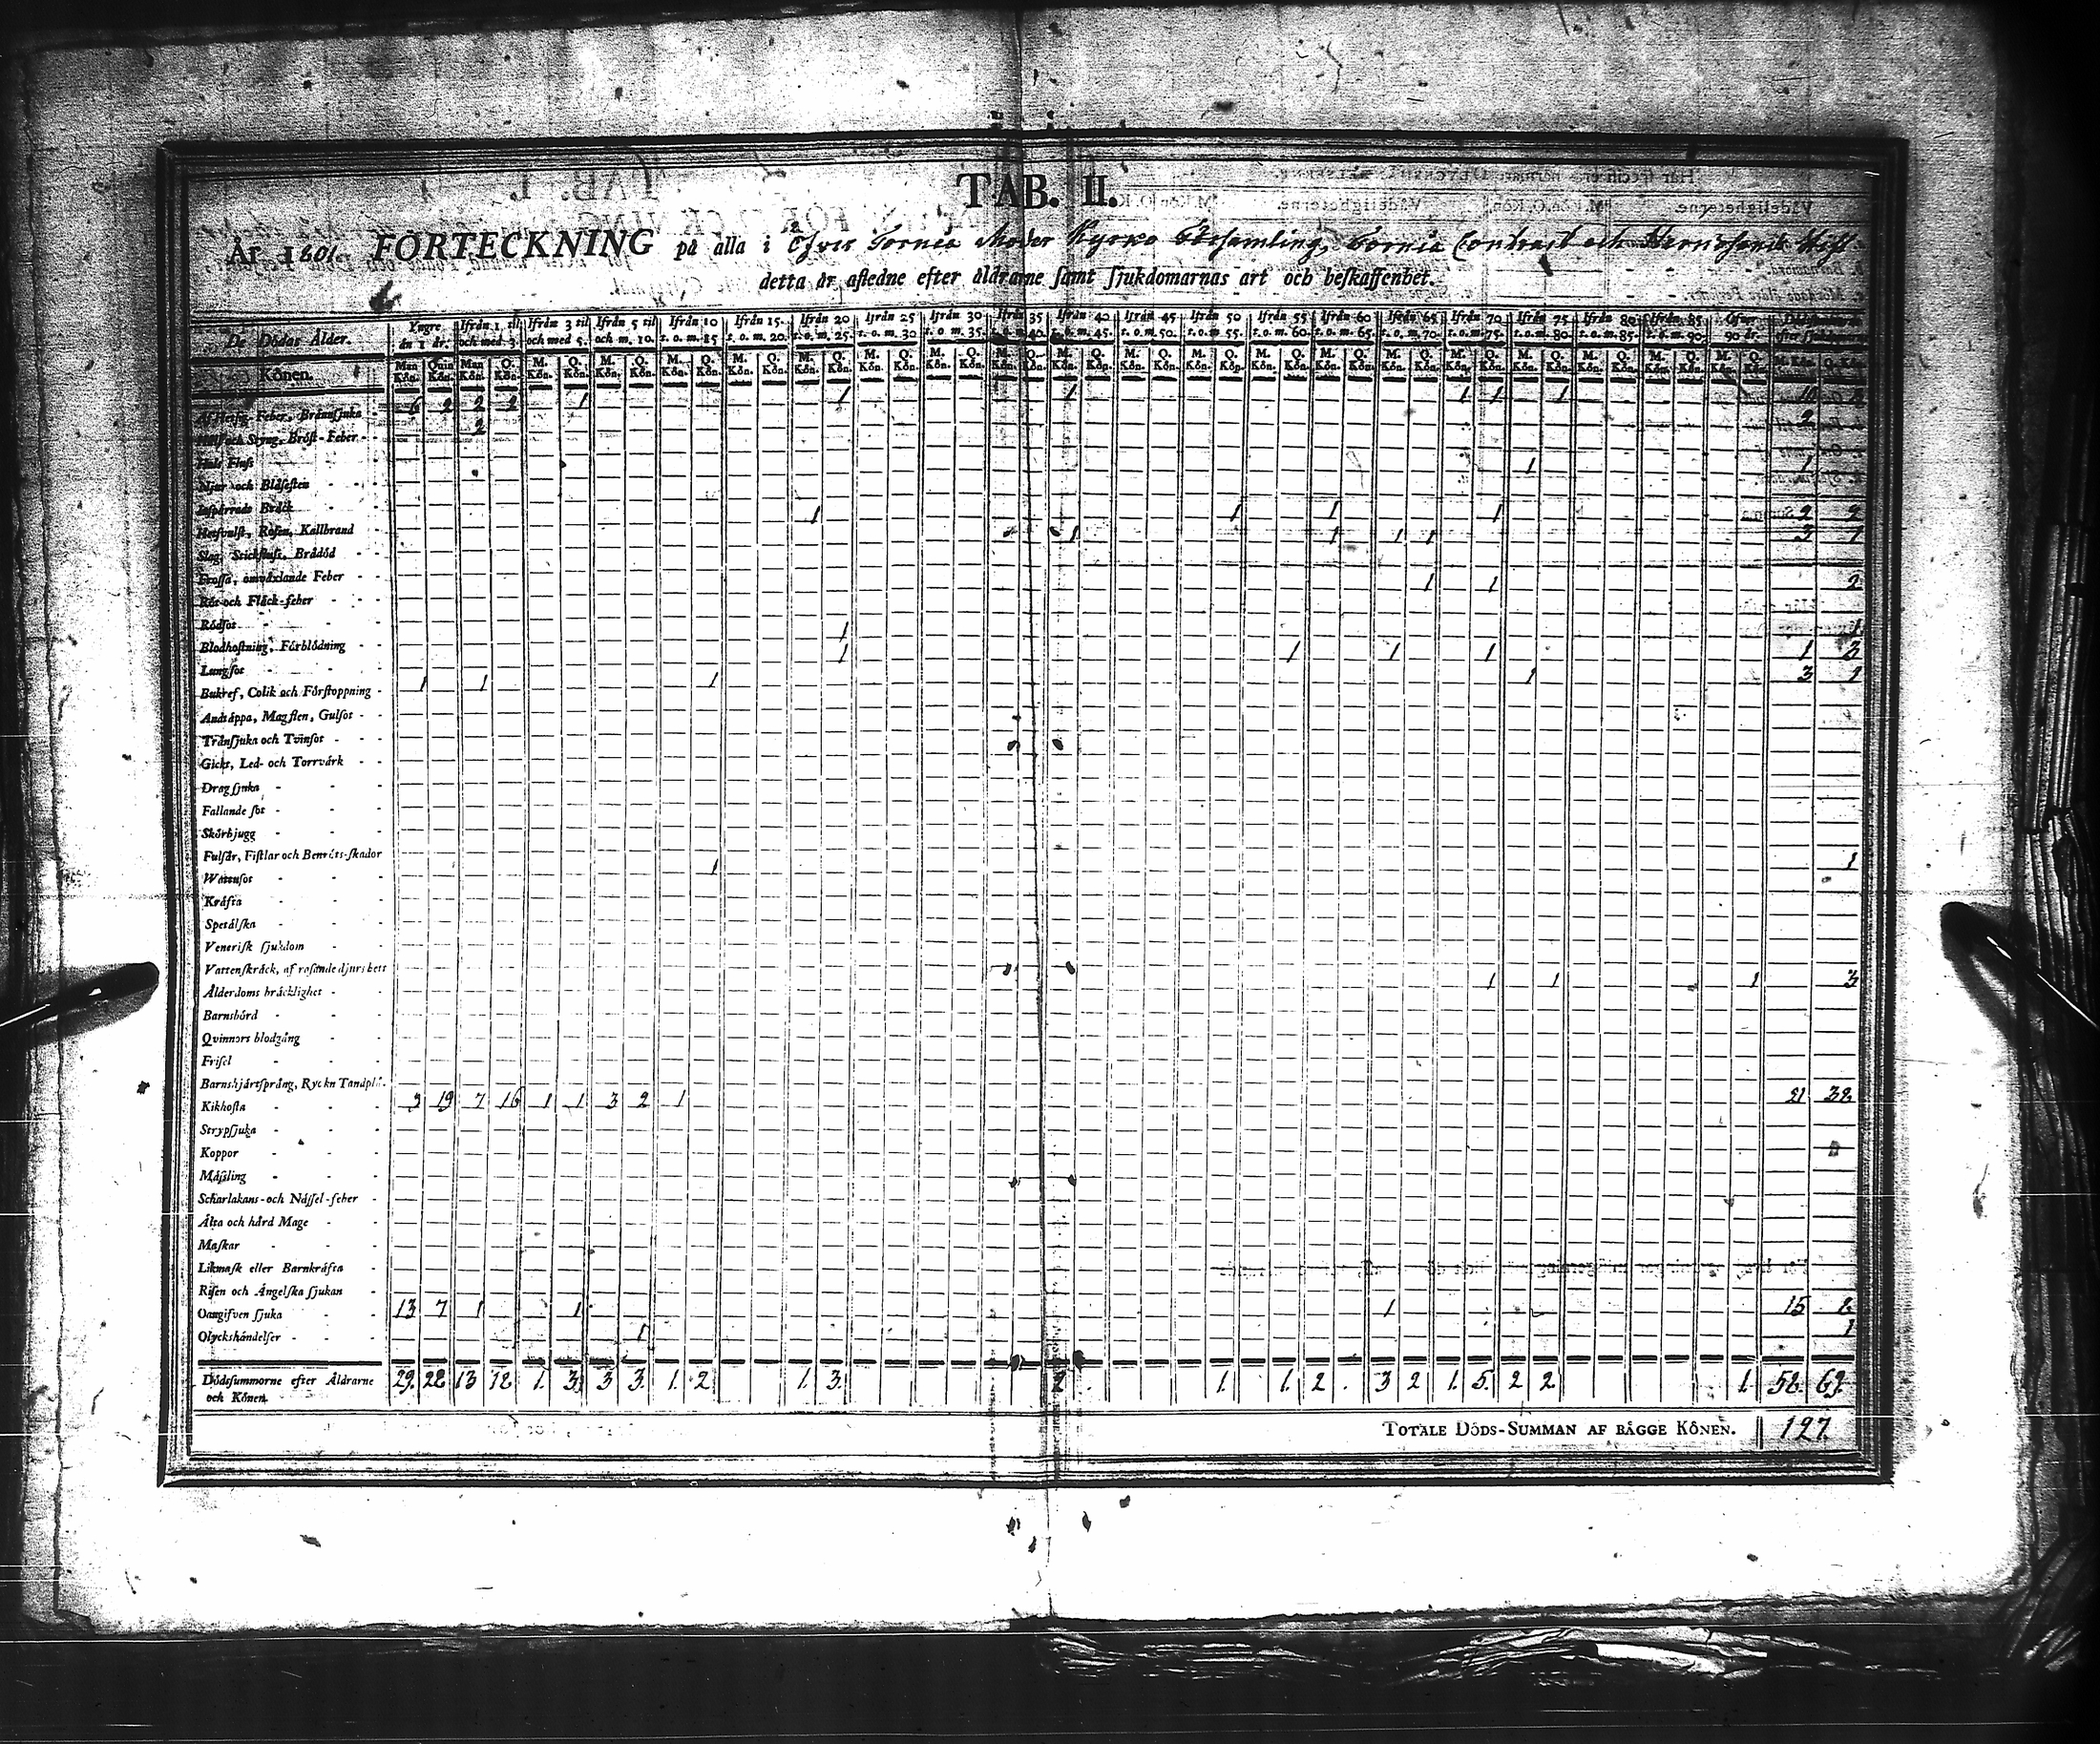 TAB. II.
År 1801. FÖRTECKNING på alla i Öfver Torneå Moder Kyrko Församling, Torneå Contract och Hernösands Stift
detta år afledne efter åldrarne samt sjukdomarnas art och beskaffenhet.
De Dödas Ålder. Yngre än 1 år. Ifrån 1 til och med 3. Ifrån 3 til och med 5. Ifrån 5 til och m. 10. Ifrån 10 t. o. m. 15 Ifrån 15. t. o. m. 20. Ifrån 20 t. o. m. 25. Ifrån 25 t. o. m. 30 Ifrån 30 t. o. m. 35. Ifrån 35 t. o. m. 40. Ifrån 40 t. o. m. 45. Ifrån 45 t. o. m. 50. Ifrån 50 t. o. m. 55. Ifrån 55 t. o. m. 60. Ifrån 60 t. o. m. 65. Ifrån 65 t. o. m. 70. Ifrån 70 t. o. m. 75. Ifrån 75 t. o. m. 80 Ifrån 80 t. o. m. 85. Ifrån 85 t. o. m. 90. Öfver 90 år.
Könen. Man Kön. Quin Kön. Man Kön. Q. Kön. M. Kön. Q. Kön. M. Kön. Q. Kön. M. Kön. Q. Kön. M. Kön. Q. Kön. M. Kön. Q. Kön. M. Kön. Q. Kön. M. Kön. Q. Kön. M. Kön. Q. Kön. M. Kön. Q. Kön. M. Kön. Q. Kön. M. Kön. Q. Kön. M. Kön. Q. Kön. M. Kön. Q. Kön. M. Kön. Q. Kön. M. Kön. Q. Kön. M. Kön. Q. Kön. M. Kön. Q. Kön. M. Kön. Q. Kön. M. Kön. Q. Kön. M. Kön. Q. Kön.
Af Hetsig Feber, Brännsjuka 6 2 2 2 1 1 1 1 1 1 10
Håll och Styng, Bröst-Feber 2 2
Hals Fluss
Njur och Blåsesten 1 1
Inspärrade Bråck
Hetsvulst, Rosen, Kallbrand 1 1 1 1 2 2
Slag, Stickfluss, Brådöd 1 1 1 1 3 1
Frossa, omväxlande Feber
Röt och Fläck-feber 1 1 2
Rödsot
Blodhostning, Förblödning 1 1
Lungsot 1 1 1 1 1 3
Bukref, Colik och Förstoppning 1 1 1 1 3 1
Andtäppa, Magsten, Gulsot
Trånsjuka och Tvinsot
Gickt, Led- och Torrvärk
Dragsjuka
Fallande sot
Skörbjugg
Fulsår, Fistlar och Benröts-skador
Wattusot 1 1
Kräfta
Spetälska
Venerisk sjukdom
Vattenskräck, af rasande djurs bett
Ålderdoms bräcklighet 1 1 1 3
Barnsbörd
Qvinnors blodgång
Frisel
Barnshjärtsprång, Ryckn Tandplå.
Kikhosta 9 19 7 16 1 1 3 2 1 21 38
Strypsjuka
Koppor
Mässling
Scharlakans- och Nässel-feber
Älta och hård Mage
Maskar
Likmask eller Barnkräfta
Risen och Ängelska sjukan
Oangifven sjuka 13 7 1 1 1 15
Olyckshändelser 1 1
Dödssummorne efter Åldrarne och Könen. 29. 28 13 18 1. 3. 3 3. 1. 2. 1. 3. 2 1. 1. 2. 3 2 1. 5. 2 2. 1. 58. 69.
TOTALE DÖDS-SUMMAN AF BÄGGE KÖNEN. 127.